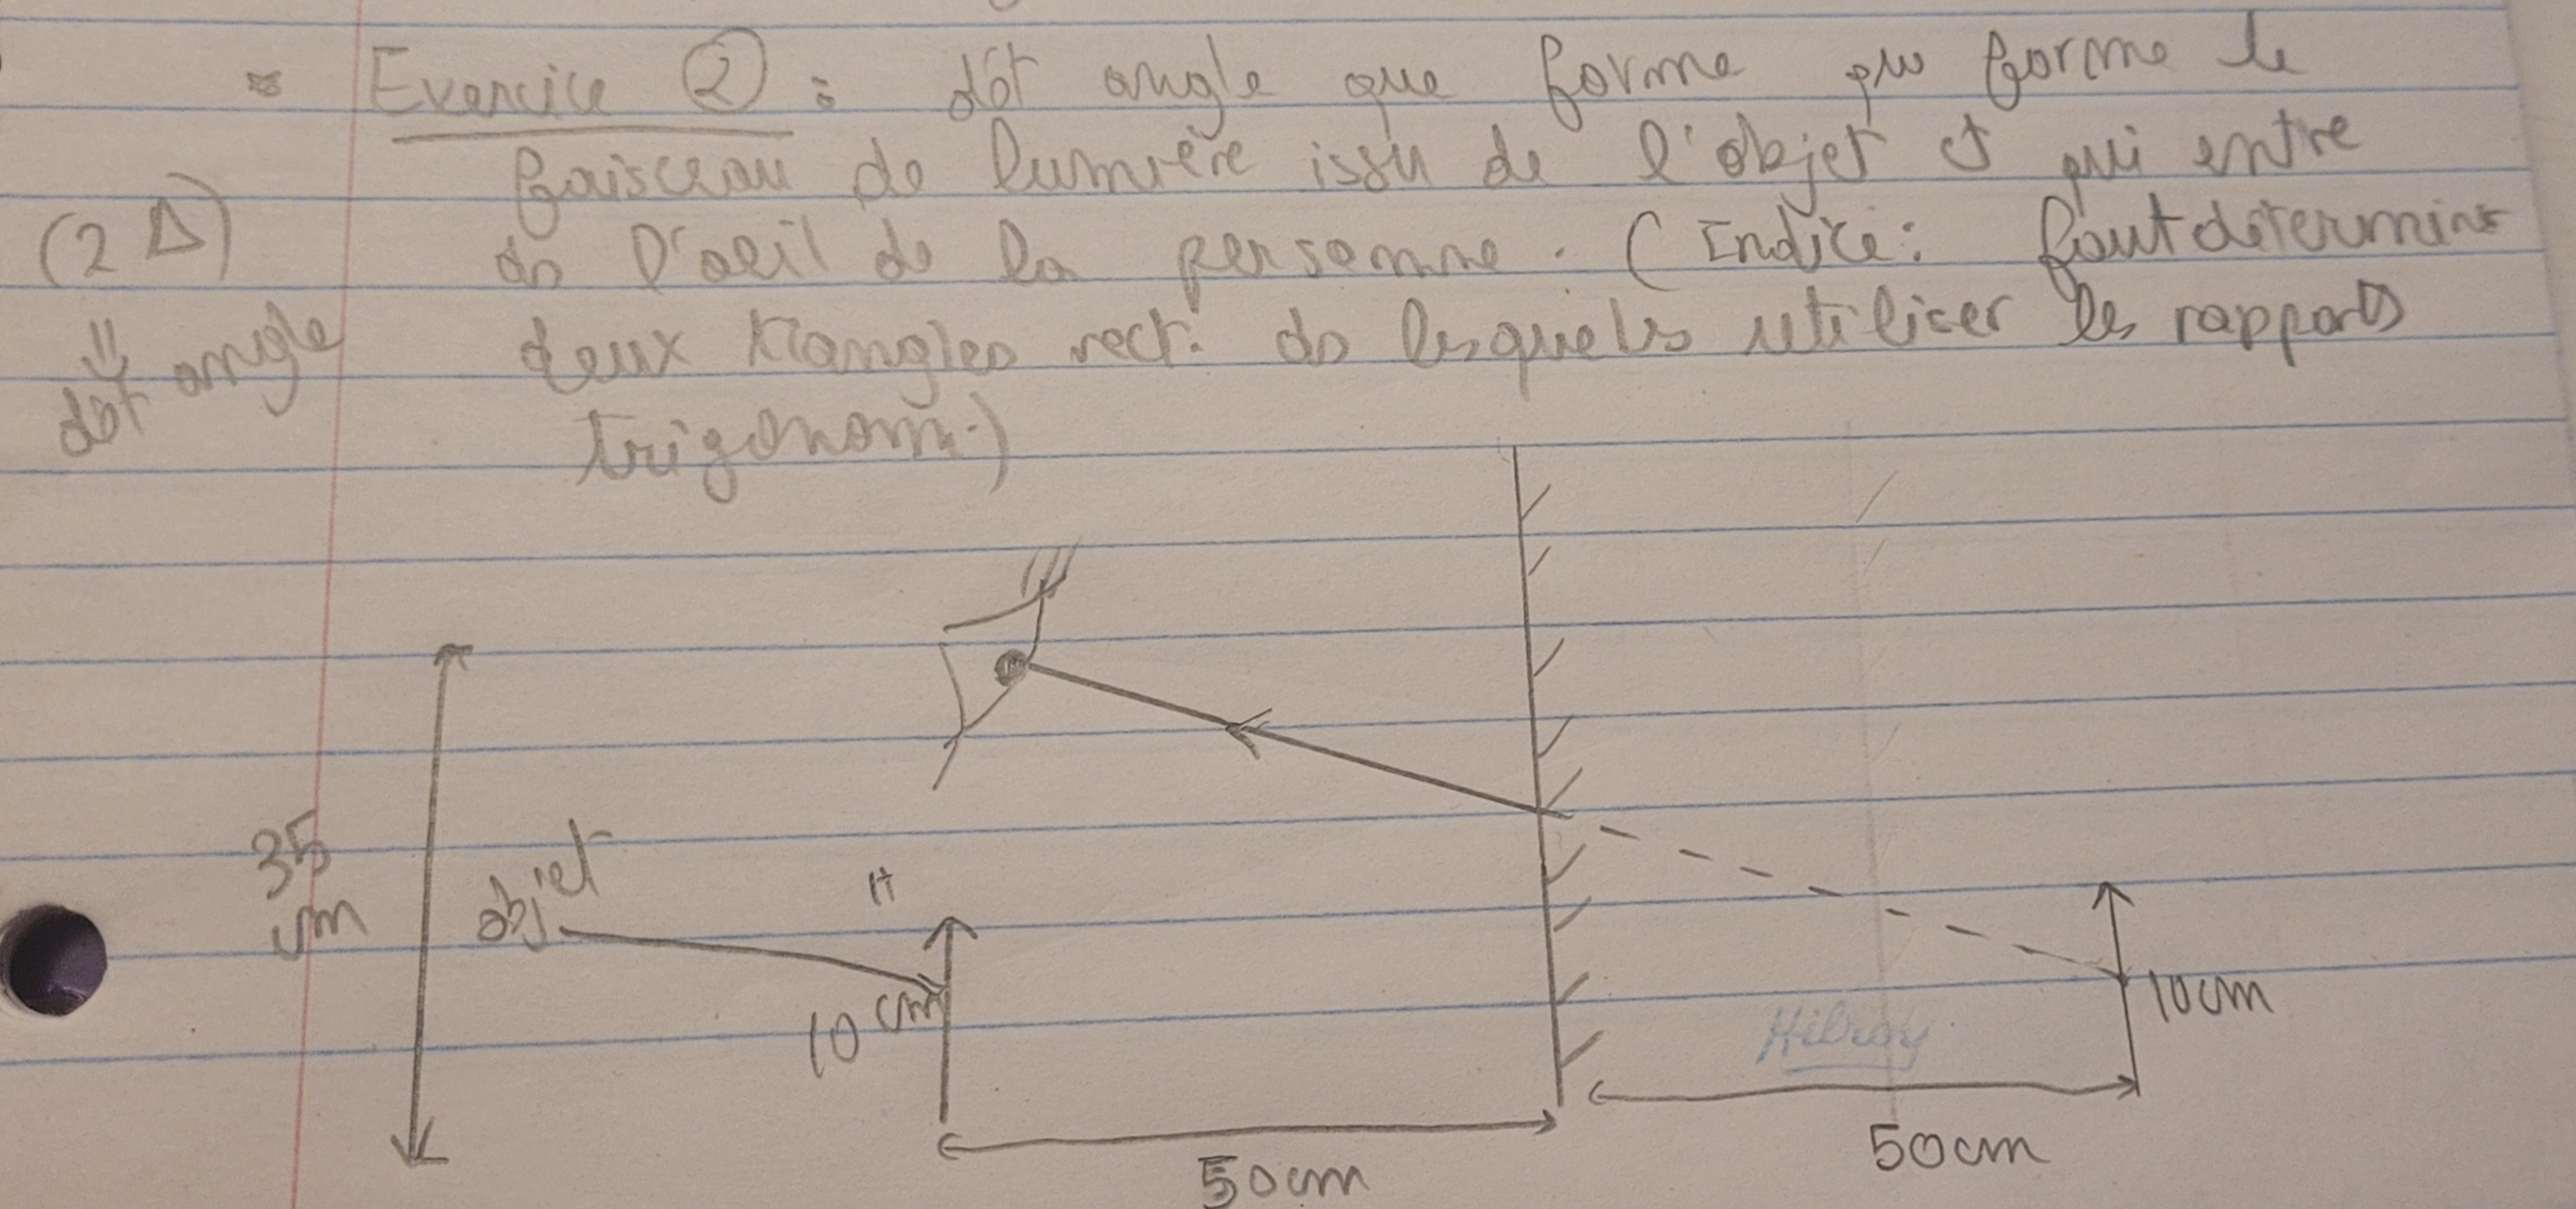 Exercice ② : dét angle que forme que forme le
faisceau de lumière issu de l'objet et qui entre
ds l'oeil de la personne. (Indice: faut déterminer
deux triangles rect. ds lesquels utiliser les rapports
trigonom.)
(2 Δ)
⇓
dét angle
35
cm
objet
10 cm
50cm
10cm
50cm
Hilroy